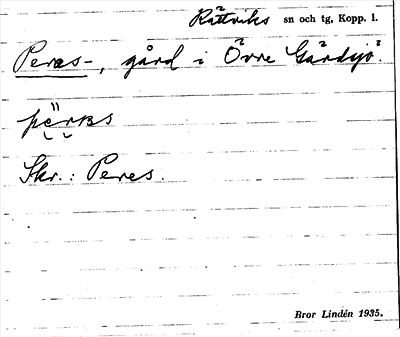 Rättviks sn och tg, Kopp. l.
Peras-, gård i Övre Gärdsjö.
Skr.: Peres.
Bror Lindén 1935.